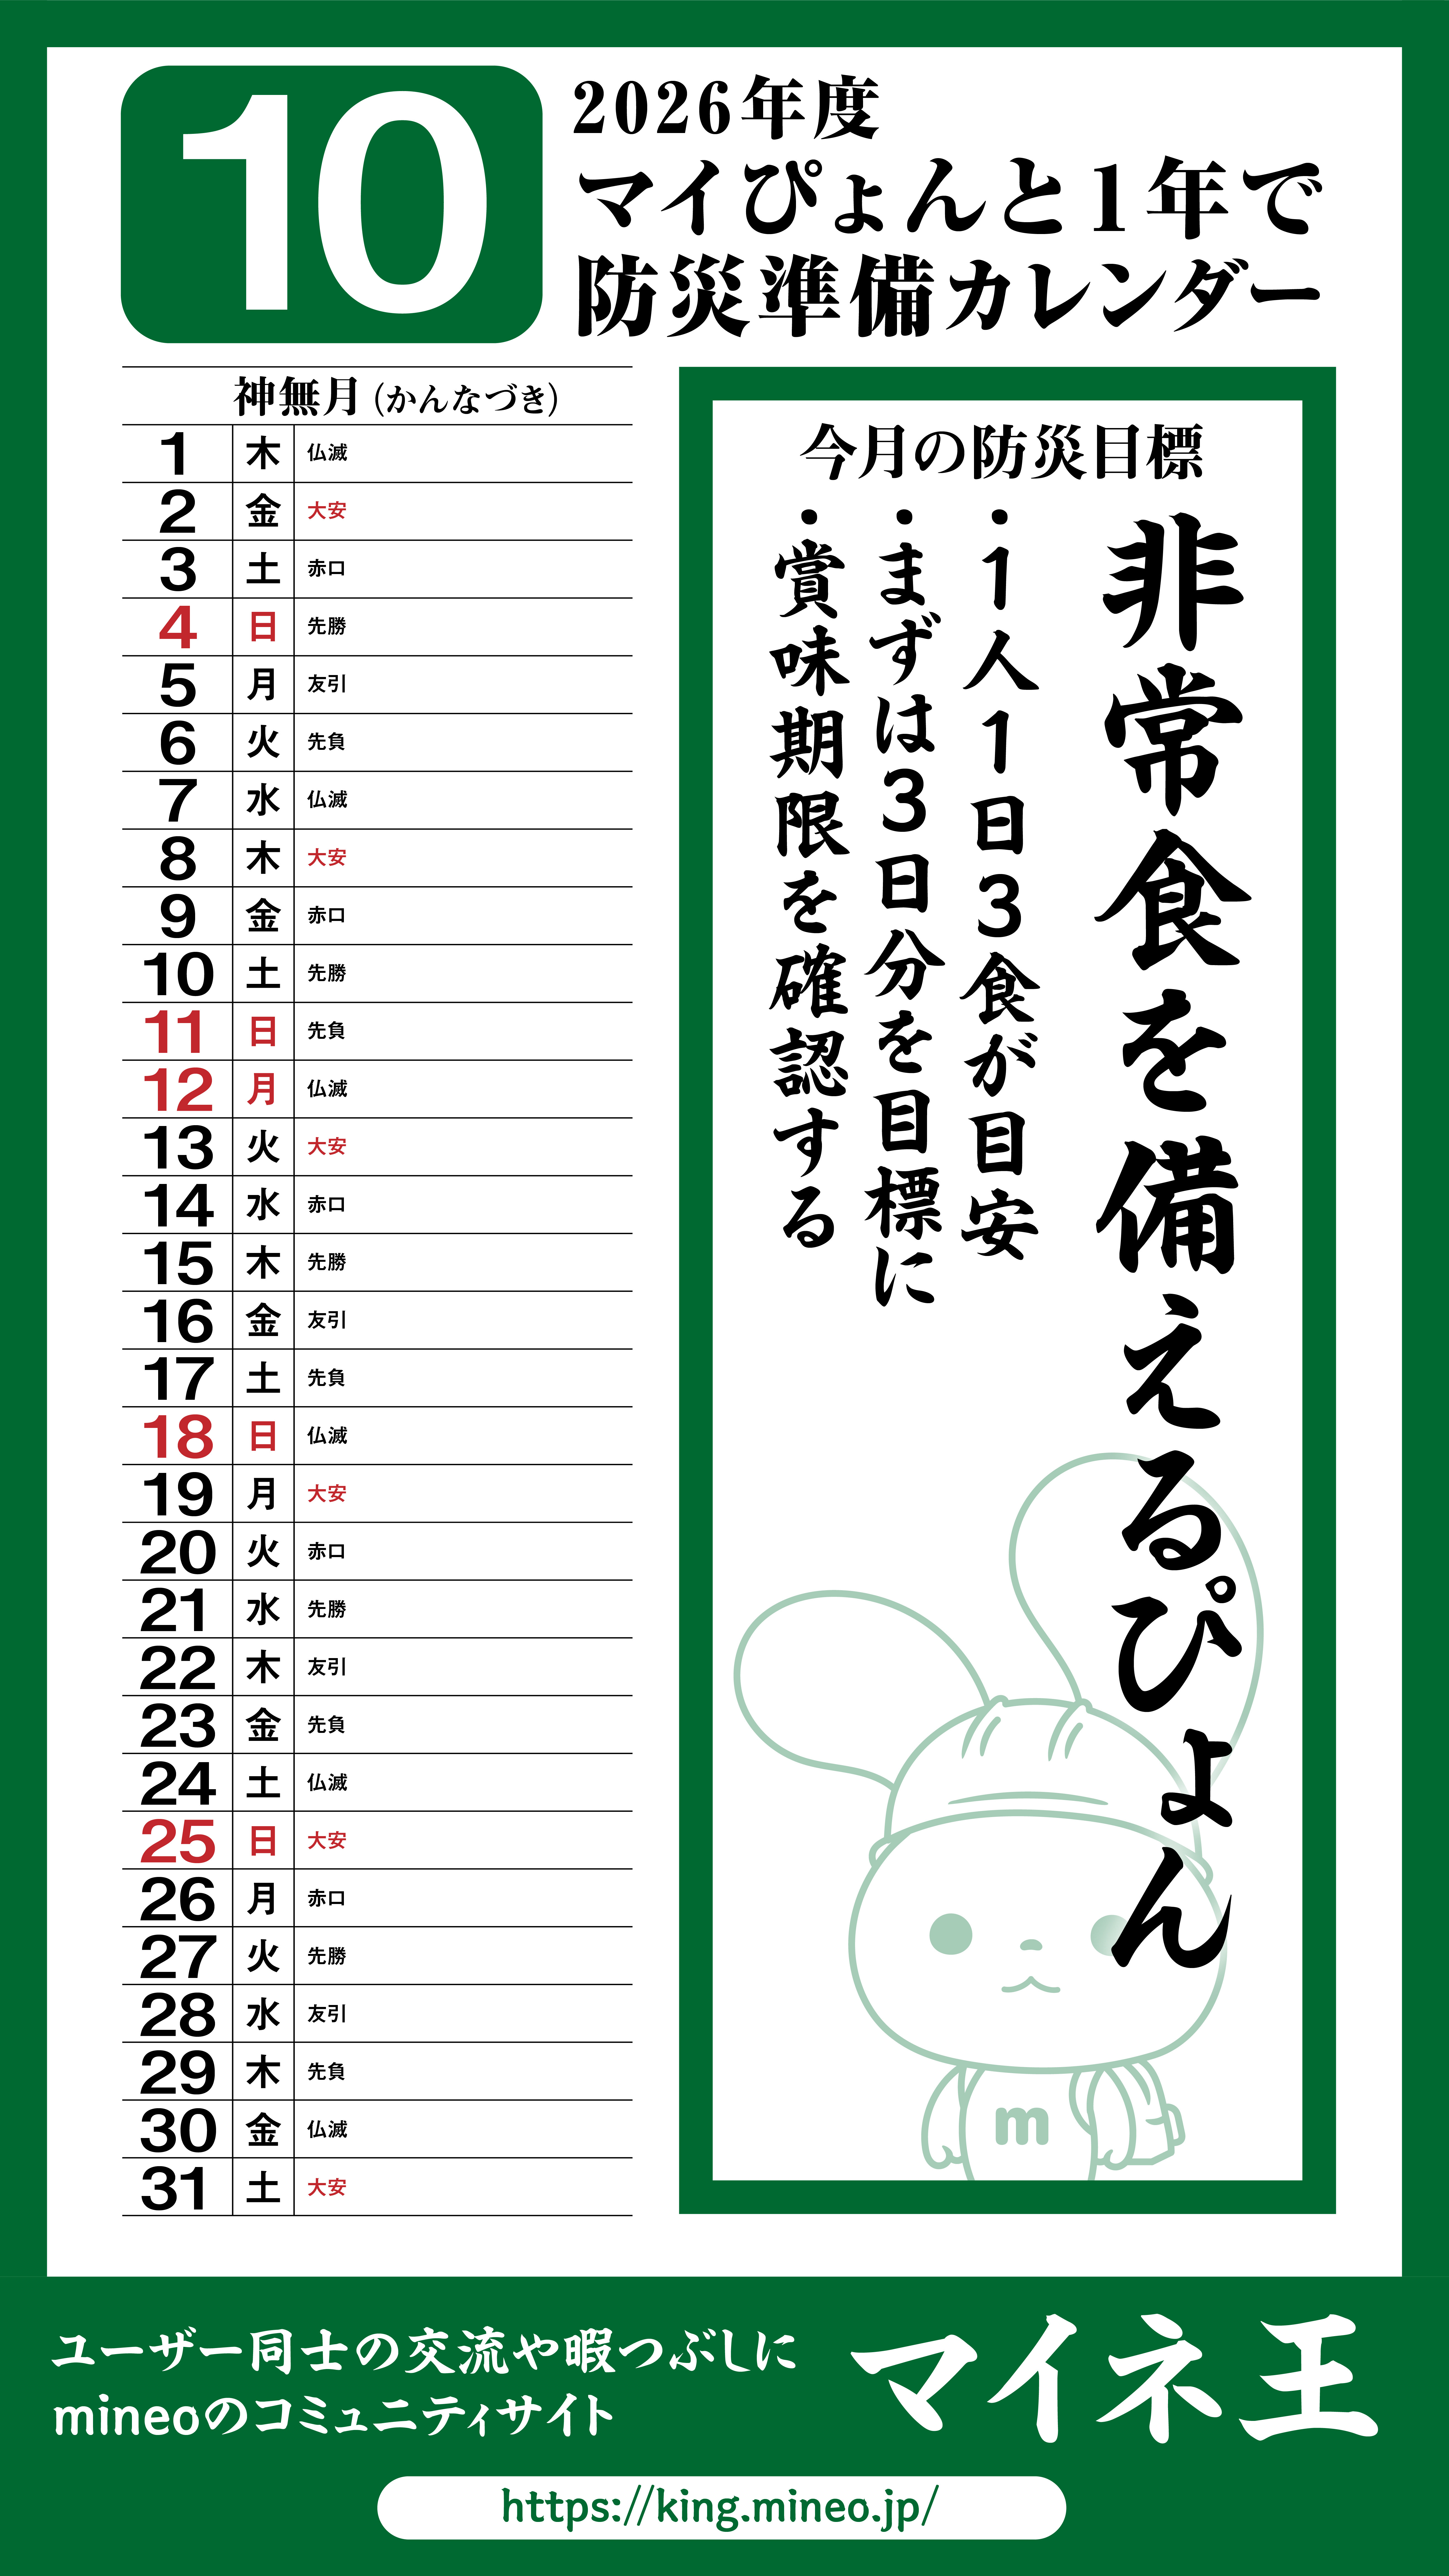 10
2026年度
マイぴょんと1年で
防災準備カレンダー
神無月(かんなづき)
1 木 仏滅
2 金 大安
3 土 赤口
4 日 先勝
5 月 友引
6 火 先負
7 水 仏滅
8 木 大安
9 金 赤口
10 土 先勝
11 日 先負
12 月 仏滅
13 火 大安
14 水 赤口
15 木 先勝
16 金 友引
17 土 先負
18 日 仏滅
19 月 大安
20 火 赤口
21 水 先勝
22 木 友引
23 金 先負
24 土 仏滅
25 日 大安
26 月 赤口
27 火 先勝
28 水 友引
29 木 先負
30 金 仏滅
31 土 大安
今月の防災目標
非常食を備えるぴょん
・1人1日3食が目安
・まずは3日分を目標に
・賞味期限を確認する
m
ユーザー同士の交流や暇つぶしに
mineoのコミュニティサイト
マイネ王
https://king.mineo.jp/